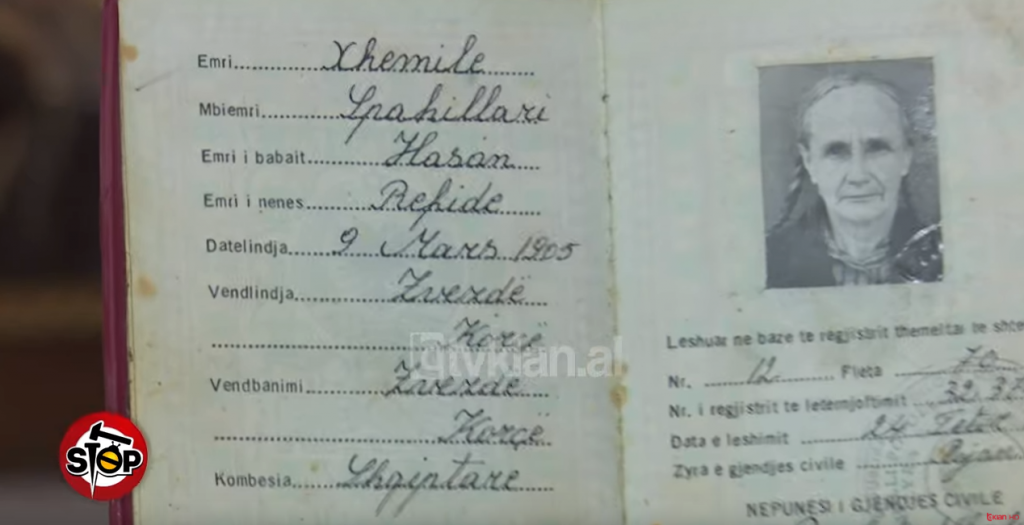 Emri..............Xhemile.......
Mbiemri............Spahillari
Emri i babait............Hasan....
Emri i nenes..........Refide......
Datelindja......9 Mars 1905
Vendlindja...............Zvezdë...
Korçë
Vendbanimi.............Zvezde....
Korçe
Kombesia.........Shqiptare.....
Leshuar ne baze te regjistrit themeltar te
Nr. ......12......... Fleta ........70
Nr. i regjistrit te leternjoftimit
Data e leshimit ........24 Tetor
Zyra e gjendjes civile
NEPUNESI I GJENDJES CIVILE
tvklan.al
STOP